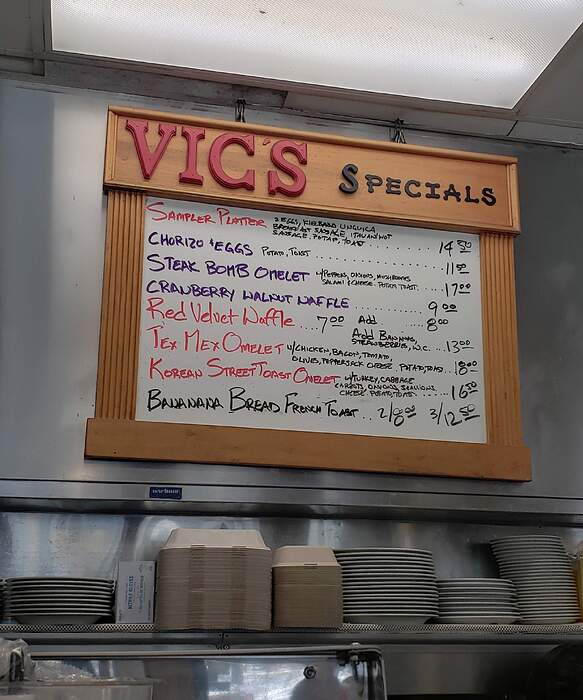 VIC'S SPECIALS
SAMPLER PLATTER 2 EGGS, KIELBASA, LINGUICA
BREAKFAST SAUSAGE, ITALIAN HOT
SAUSAGE, POTATO, TOAST 14 50
CHORIZO & EGGS POTATO, TOAST 11 50
STEAK BOMB OMELET W/PEPPERS, ONIONS, MUSHROOMS
SALAMI & CHEESE. POTATO TOAST. 17 00
CRANBERRY WALNUT WAFFLE 9 00
Red Velvet Waffle 7 00 Add 8 00
Add BANANAS,
STRAWBERRIES, W.C. 13 00
TEX MEX OMELET W/CHICKEN, BACON, TOMATO,
OLIVES, PEPPERJACK CHEESE. POTATO, TOAST. 18 00
KOREAN STREET TOAST OMELET W/TURKEY, CABBAGE
CARROTS, ONIONS, SCALLIONS,
CHEESE. POTATO, TOAST 16 50
BANANANA BREAD FRENCH TOAST 2/8 00 3/12 50